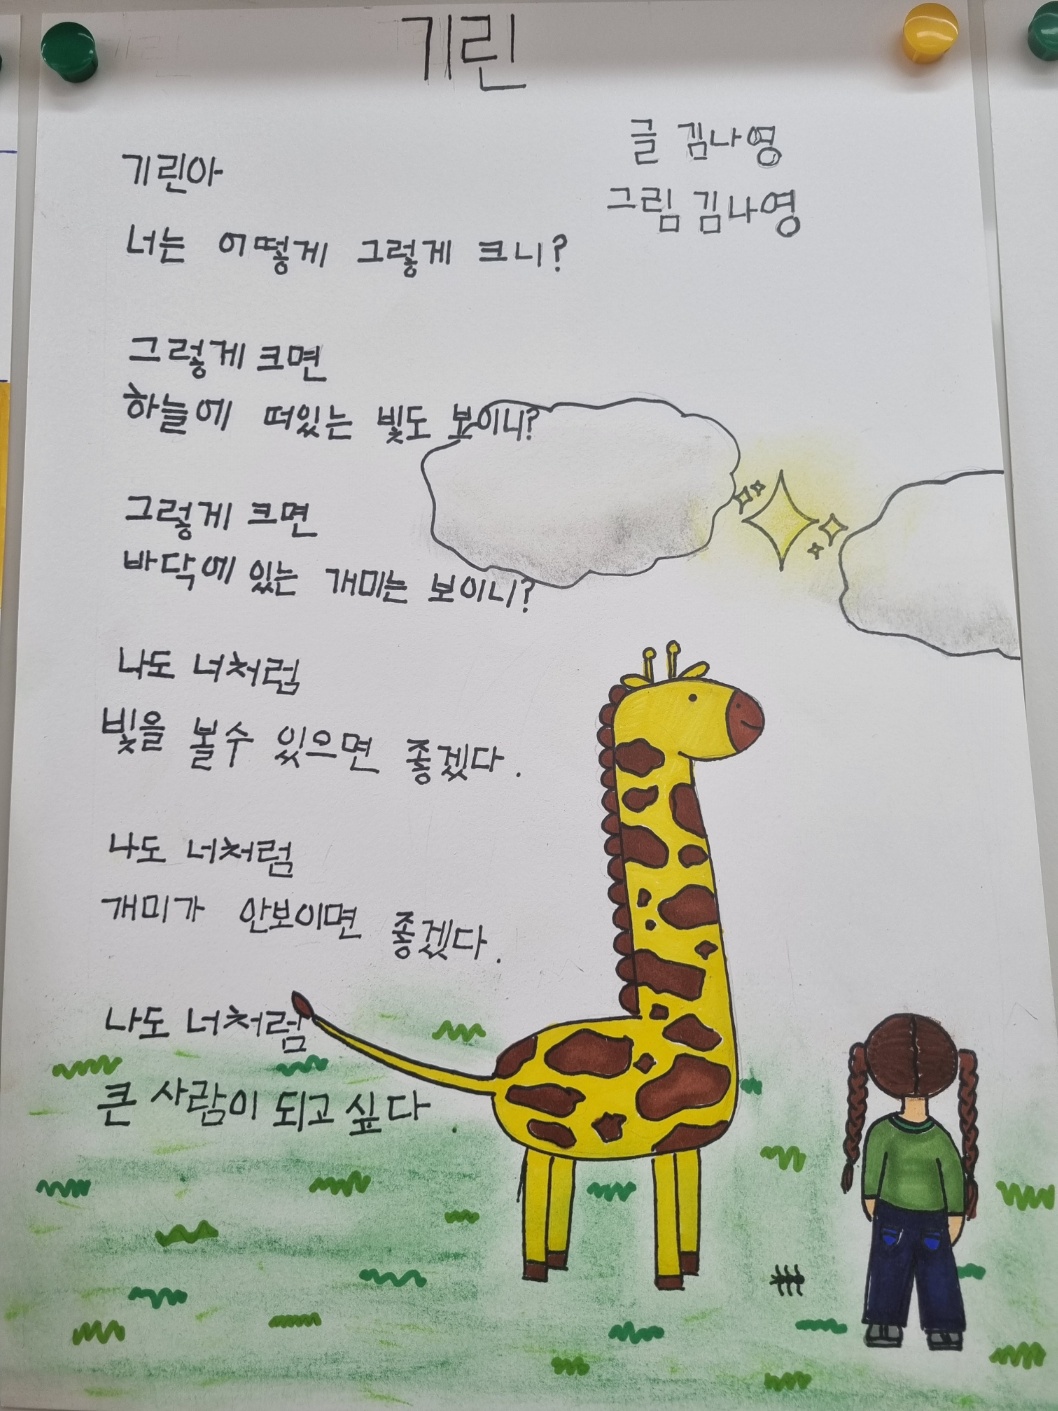 기린
글 김나영
그림 김나영
기린아
너는 어떻게 그렇게 크니?
그렇게 크면
하늘에 떠있는 빛도 보이니?
그렇게 크면
바닥에 있는 개미는 보이니?
나도 너처럼
빛을 볼수 있으면 좋겠다.
나도 너처럼
개미가 안보이면 좋겠다.
나도 너처럼
큰 사람이 되고 싶다.